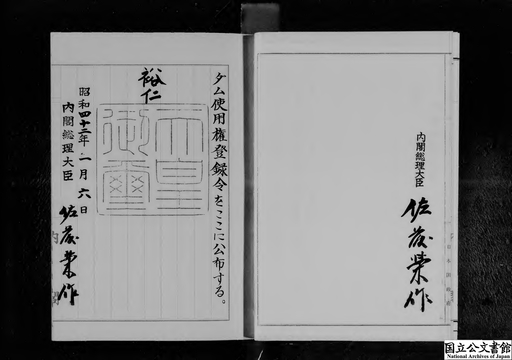 ダム使用権登録令をここに公布する。
裕仁
天皇御璽
昭和四十三年一月六日
内閣総理大臣 佐藤栄作
内閣総理大臣
佐藤栄作
国立公文書館
National Archives of Japan